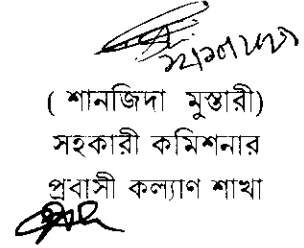 ( শানজিদা মুস্তারী)
সহকারী কমিশনার
প্রবাসী কল্যাণ শাখা